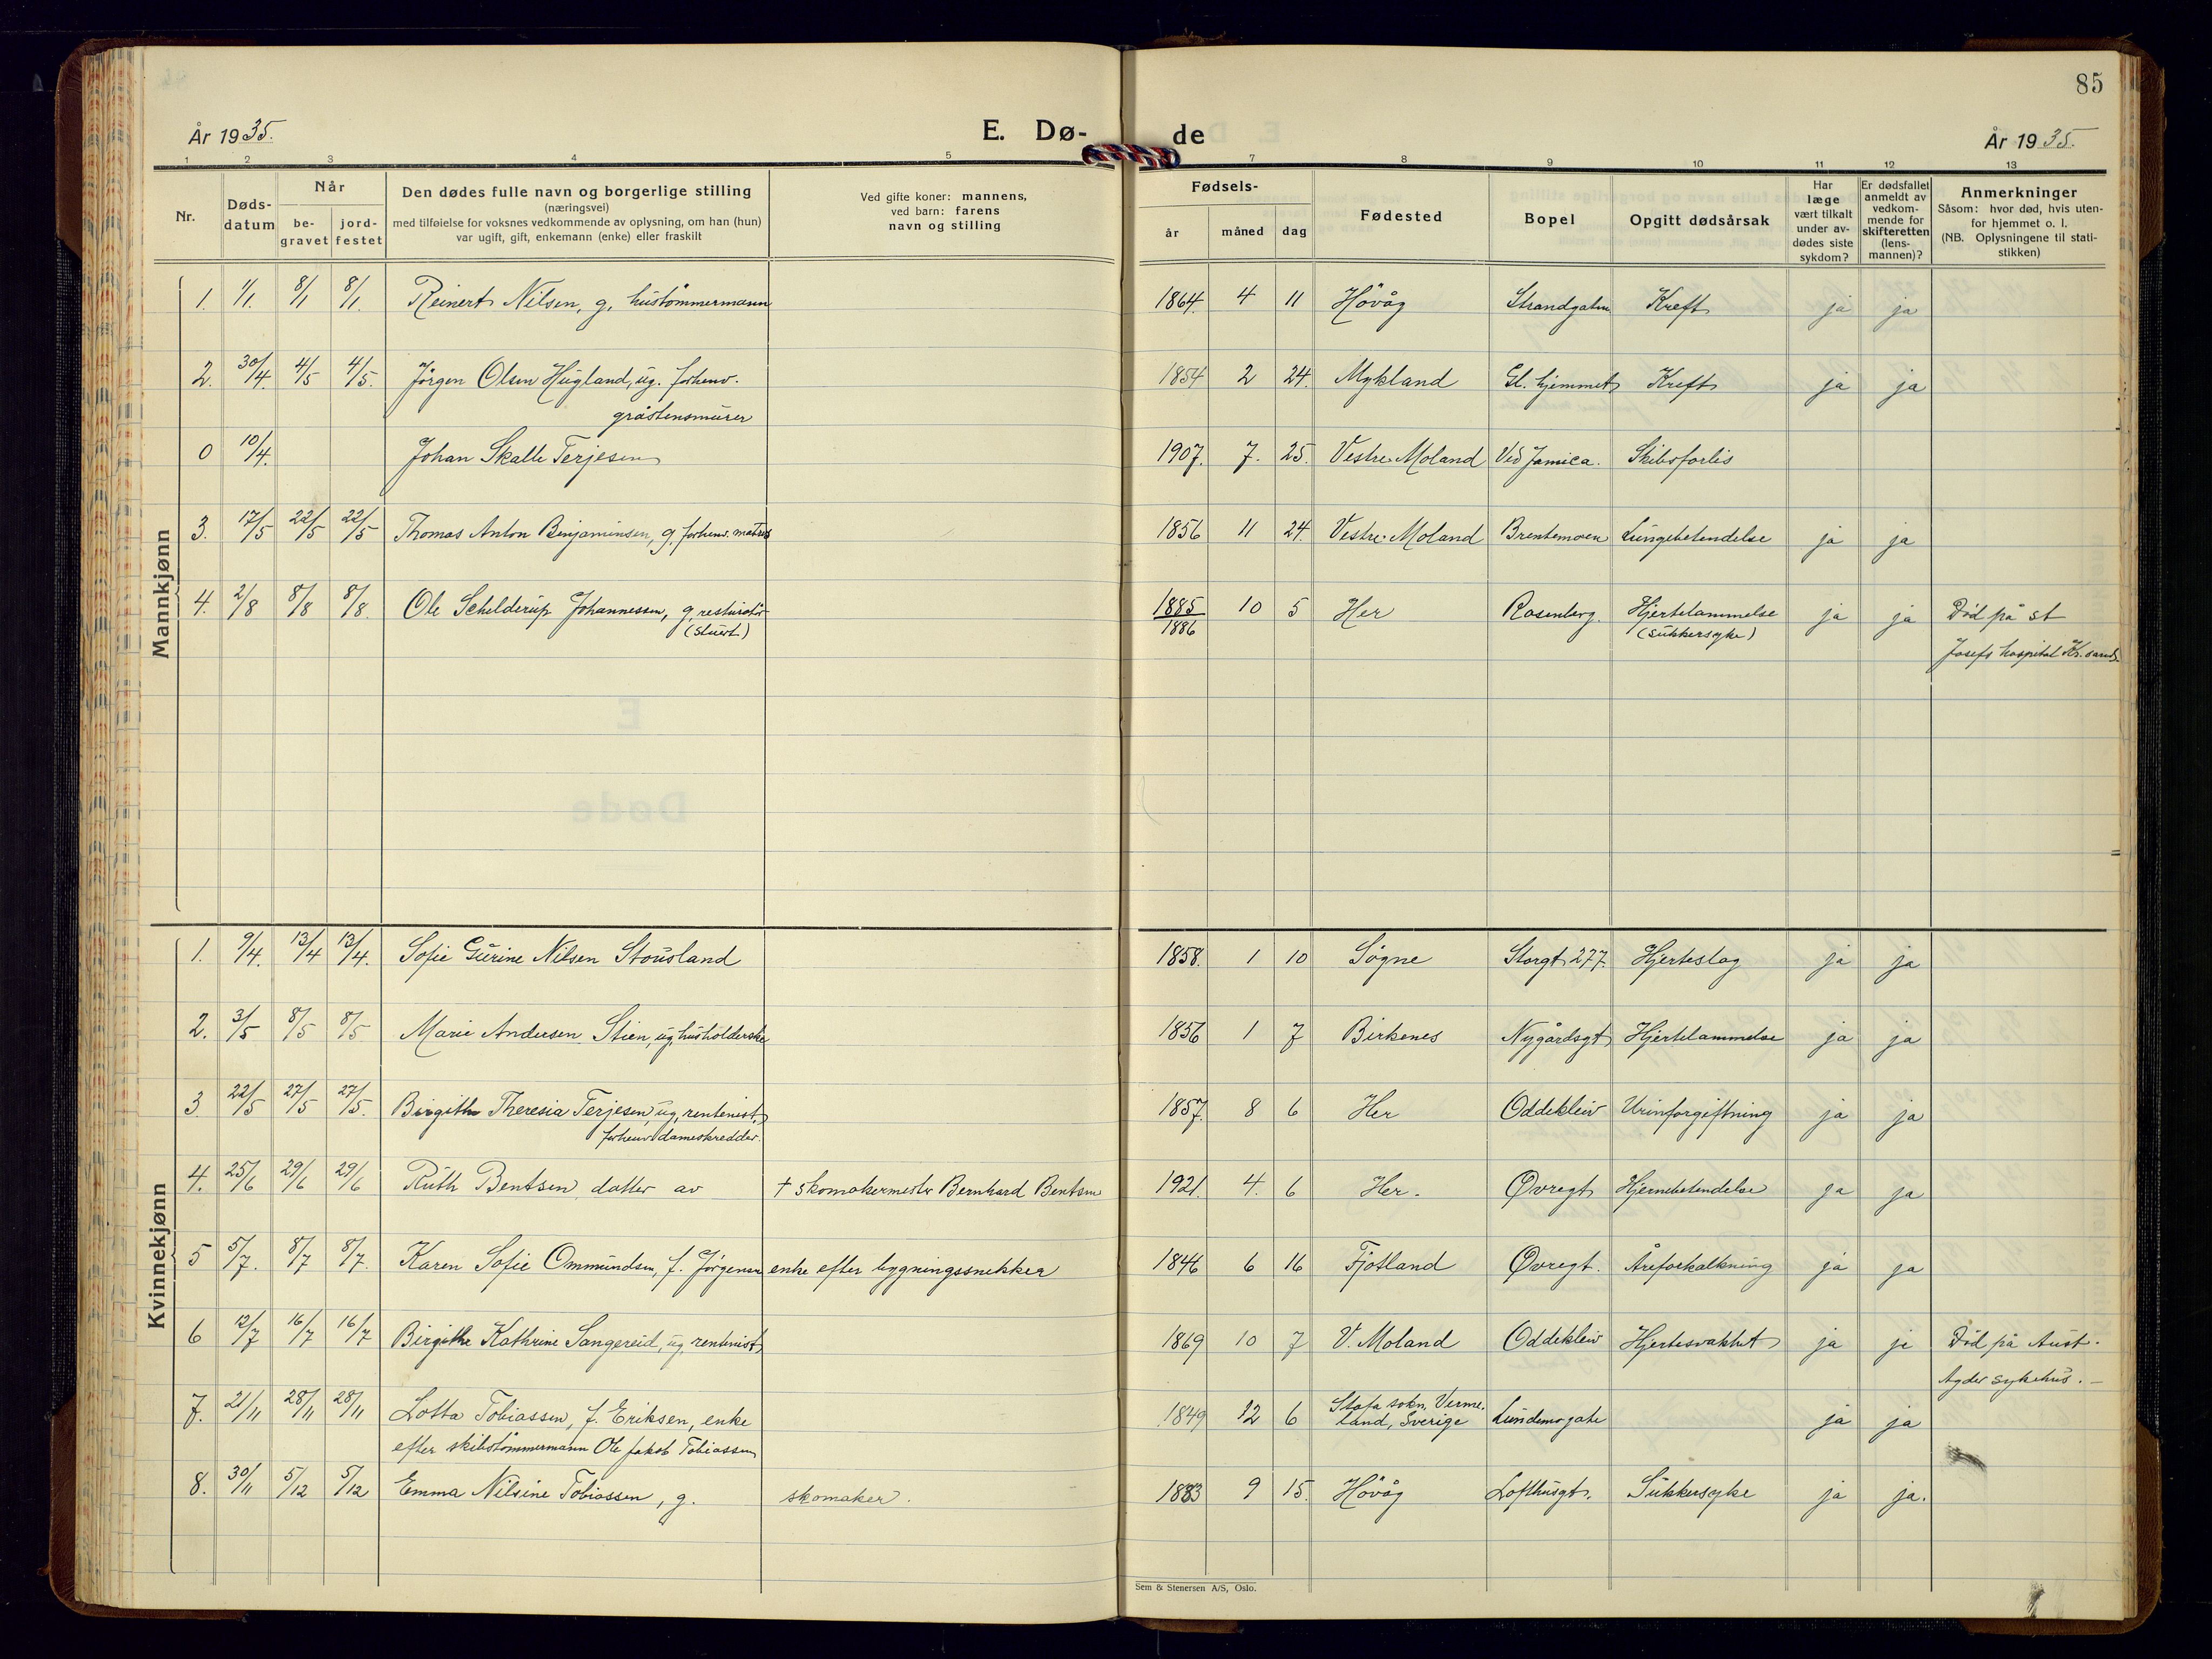 85
År 1935.
E. Dø-
de
År 1935.
1 2 3 4 5 7 8 9 10 11 12 13
Nr.
Døds-
datum
Når
be-
gravet
jord-
festet
Den dødes fulle navn og borgerlige stilling
(næringsvei)
med tilføielse for voksnes vedkommende av oplysning, om han (hun)
var ugift, gift, enkemann (enke) eller fraskilt
Ved gifte koner: mannens,
ved barn: farens
navn og stilling
Fødsels-
år måned dag
Fødested
Bopel
Opgitt dødsårsak
Har
læge
vært tilkalt
under av-
dødes siste
sykdom?
Er dødsfallet
anmeldt av
vedkom-
mende for
skifteretten
(lens-
mannen)?
Anmerkninger
Såsom: hvor død, hvis uten-
for hjemmet o. l.
(NB. Oplysningene til stati-
stikken)
Mannkjønn
1. 1/1. 8/1 8/1. Reinert Nilsen, g. hustömmermann 1864. 4 11 Hövåg Strandgaten Kreft ja ja
2. 30/4. 4/5 4/5. Jörgen Olsen Hugland, ug. forhenv. 1854 2 24. Mykland Gl. hjemmet Kreft ja ja
gråstensmurer
0 10/4. Johan Skalle Terjesen 1907. 7. 25. Vestre-Moland Ved Jamica. Skibsforlis
3. 17/5 22/5 22/5 Thomas Anton Benjaminsen, g. forhenv. matros 1856 11 24. Vestre-Moland Brentemoen Lungebetendelse ja ja
4. 2/8 8/8 8/8. Ole Schelderup Johannessen, g. resturatör 1885 10 5 Her Rosenberg. Hjertelammelse ja ja Död på st
(stuert) 1886 (sukkersyke)
Josefs hospital Kr.sand.
Kvinnekjønn
1. 9/4. 13/4 13/4. Sofie Gurine Nilsen Stousland 1858. 1 10 Sögne Storgt 277. Hjerteslag ja ja
2. 3/5 8/5 8/5 Marie Andersen Stien, ug. husholderske 1856 1 7 Birkenes Nygårdsgt Hjertelammelse ja ja
3 22/5 27/5 27/5. Birgithe Theresia Terjesen, ug. rentenist, 1857. 8 6 Her Oddekleiv Urinforgiftning ja ja
forhenv. dameskredder.
4. 25/6 29/6 29/6 Ruth Bentsen, datter av † skomakermester Bernhard Bentsen 1921. 4. 6 Her. Øvregt Hjernebetendelse ja ja
5 5/7. 8/7 8/7. Karen Sofie Ommundsen, f. Jörgensen enke efter bygningssnekker 1846 6 16 Fjotland Øvregt. Åreforkalkning ja ja
6 12/7 16/7 16/7 Birgithe Kathrine Sangereid, ug. rentenist 1869 10 7 V. Moland Oddekleiv Hjertesvakhet ja ja Död på Aust-
Agder sykehus. —
7. 21/11 28/11 28/11 Lotta Tobiassen, f. Eriksen, enke 1849 12 6 Stafa sokn, Verme- Lundemogate ja ja
efter skibstömmermann Ole Jakob Tobiassen land, Sverige
8. 30/11 5/12 5/12 Emma Nilsine Tobiassen, g. skomaker. 1883 9 15. Hövåg Lofthusgt. Sukkersyke ja ja.
Sem & Stenersen A/S, Oslo.